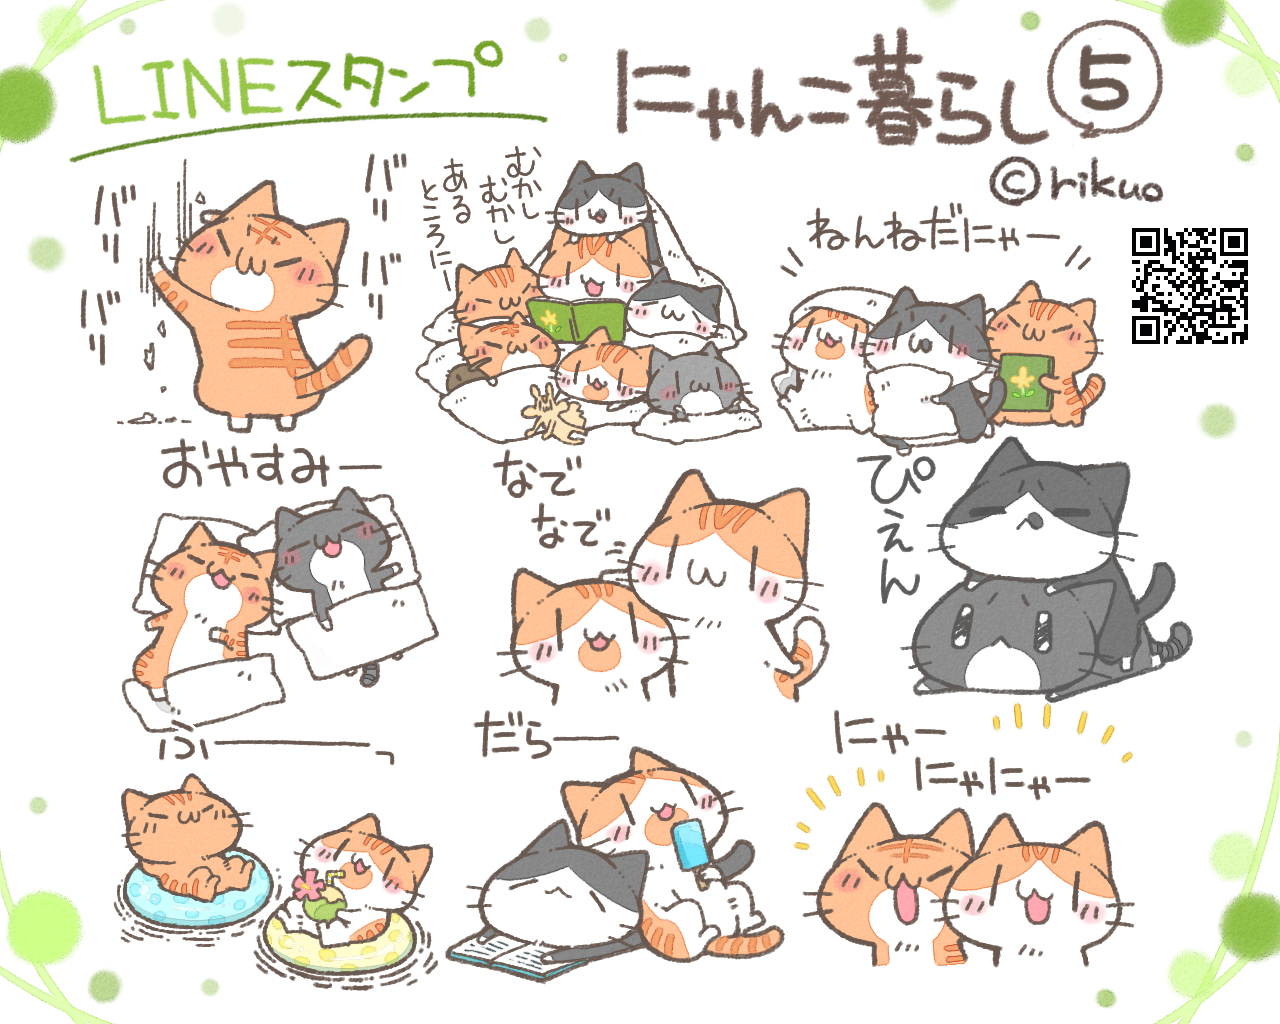 LINEスタンプ
にゃんこ暮らし⑤
©rikuo
バ"
バ"
バ"
バ"
むかし
むかし
ある
ところにー
ねんねだにゃー
おやすみー
なで
なで
ぴえん
ふーっ
だらー
にゃー
にゃにゃー